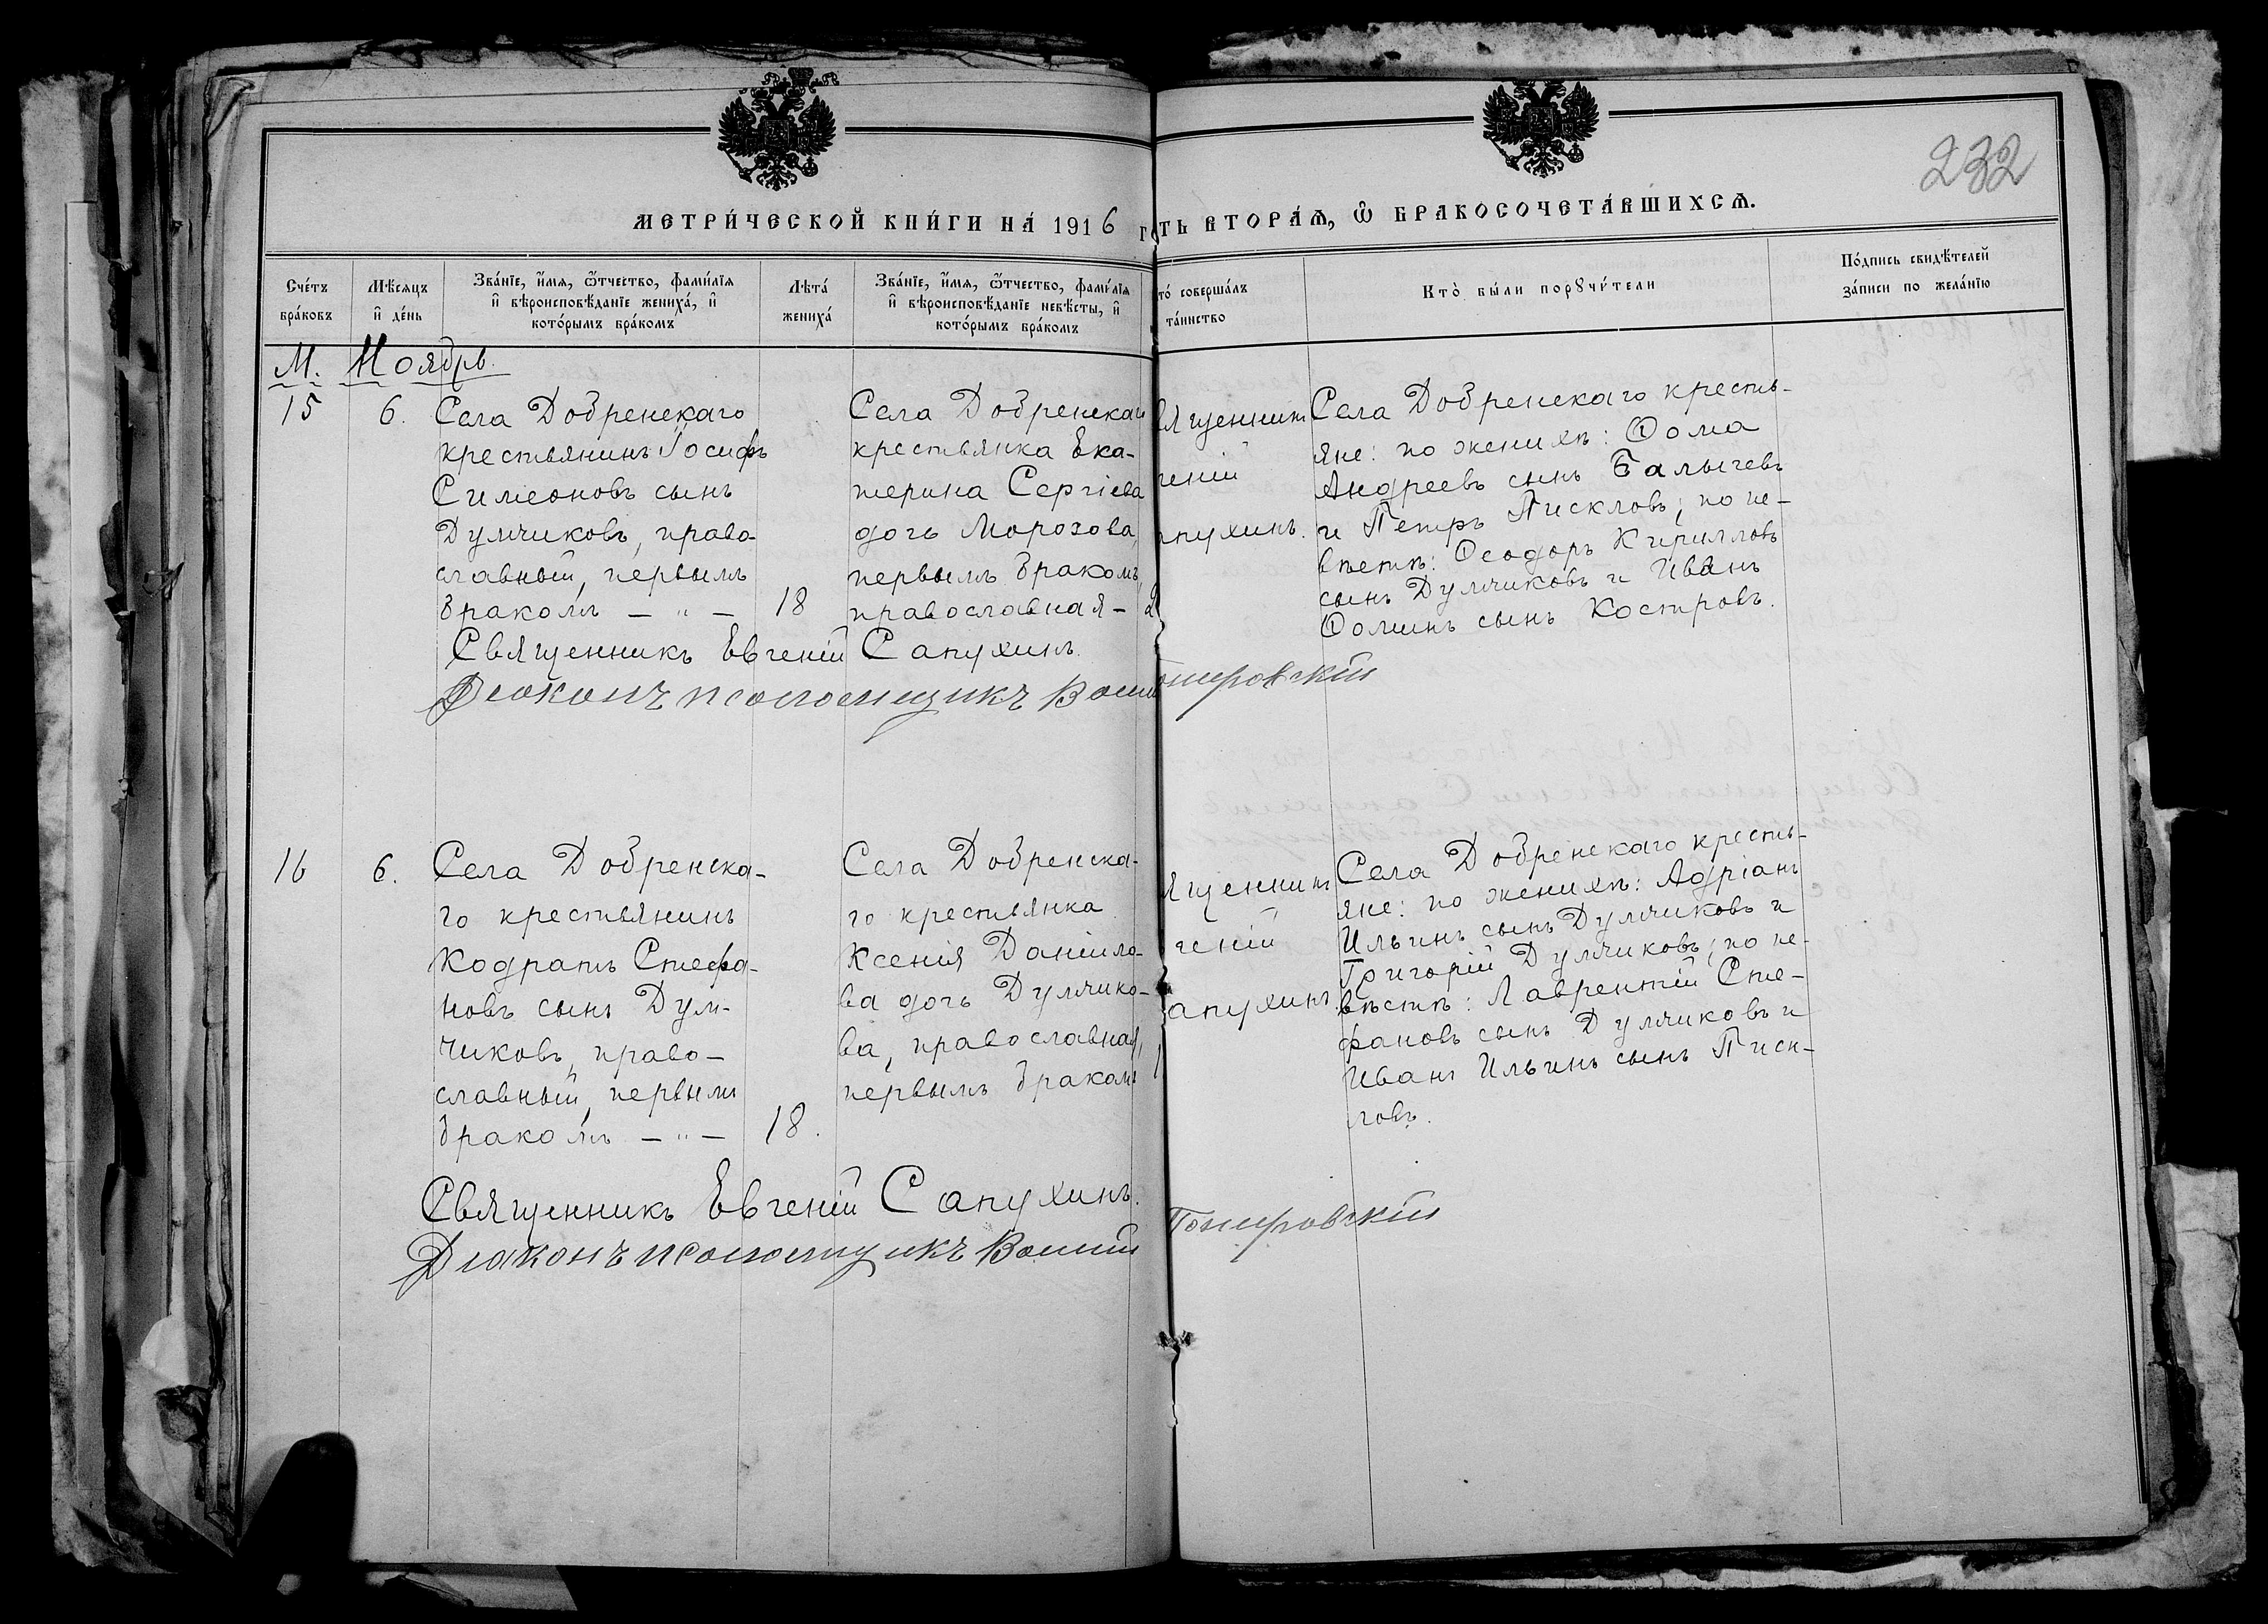 232
МЕТРИ́ЧЕСКОЙ КНИ́ГИ НА́ 1916 г
ть ВТОРА́Ѧ, Ѽ БРАКОСОЧЕТА́ВШИХСѦ.
Сче́тъ бра́ковъ
Мѣ́сяцъ и҆ де́нь
Зва́нїе, и҆́мя, ѻ҆́тчество, фами́лїя
и҆ вѣроисповѣ́данїе жениха́, и҆
кото́рымъ бра́комъ
Лѣта́ жениха́
Зва́нїе, и҆́мя, ѻ҆́тчество, фами́лїя
и҆ вѣроисповѣ́данїе невѣ́сты, и҆
кото́рымъ бра́комъ
то́ соверша́лъ
та́инство
Кто̀ бы́ли порꙋчи́тели
По́дпись свидѣ́телей
за́писи по жела́нїю
М. Ноябрь.
15
6.
Села Добренскаго
крестьянинъ Іосифъ
Симеоновъ сынъ
Думчиковъ, право-
славный, первымъ
бракомъ — „ —
18
Села Добренскаго
крестьянка Ека-
терина Сергіева
дочь Морозова,
первымъ бракомъ,
православная —
ященникъ
геній
пухинъ.
Села Добренскаго кресть-
яне: по женихѣ: Ѳома
Андреевъ сынъ Балычевъ
и Петръ Пискловъ; по не-
вѣстѣ: Ѳеодоръ Кирилловъ
сынъ Думчиковъ и Иванъ
Ѳоминъ сынъ Костровъ.
Священникъ Евгеній Сапухинъ.
Діаконъ псаломщикъ
16
6.
Села Добренска-
го крестьянинъ
Кодратъ Стефа-
новъ сынъ Дум-
чиковъ, право-
славный, первымъ
бракомъ — „ —
18.
Села Добренска-
го крестьянка
Ксенія Даніило-
ва дочь Думчико-
ва, православная,
первымъ бракомъ
ященникъ
геній
апухинъ
Села Добренскаго кресть-
яне: по женихѣ: Адріанъ
Ильинъ сынъ Думчиковъ и
Григорій Думчиковъ; по не-
вѣстѣ: Лаврентій Сте-
фановъ сынъ Думчиковъ и
Иванъ Ильинъ сынъ Писк-
ловъ.
Священникъ Евгеній Сапухинъ.
Діаконъ псаломщикъ